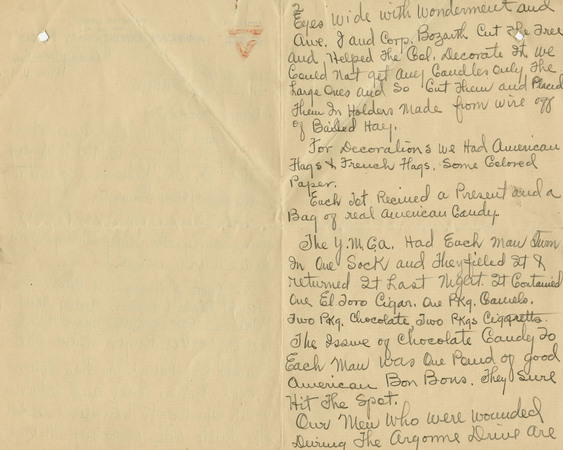 2
Eyes Wide with Wonderment and
Awe. I and Corp. Bozarth Cut The Tree
and Helped The Col. Decorate It. We
Could Not get Any Candles Only The
Large Ones And So Cut Them and Placed
Them In Holders Made from wire off
of Bailed Hay.
For Decorations We Had American
Flags & French Flags. Some Colored
Paper.
Each Tot Recived a Present and a
Bag of real American Candy.
The Y.M.C.A. Had Each Man Turn
In One Sock and They filled It &
returned It Last Night. It Contained
One El Toro Cigar. One Pkg. Camels.
Two Pkg. Chocolate, Two Pkgs Cigaretts.
The Issue of Chocolate Candy To
Each Man Was One Pound of good
American Bon Bons. They Sure
Hit The Spot.
Our Men Who were wounded
During The Argonne Drive Are